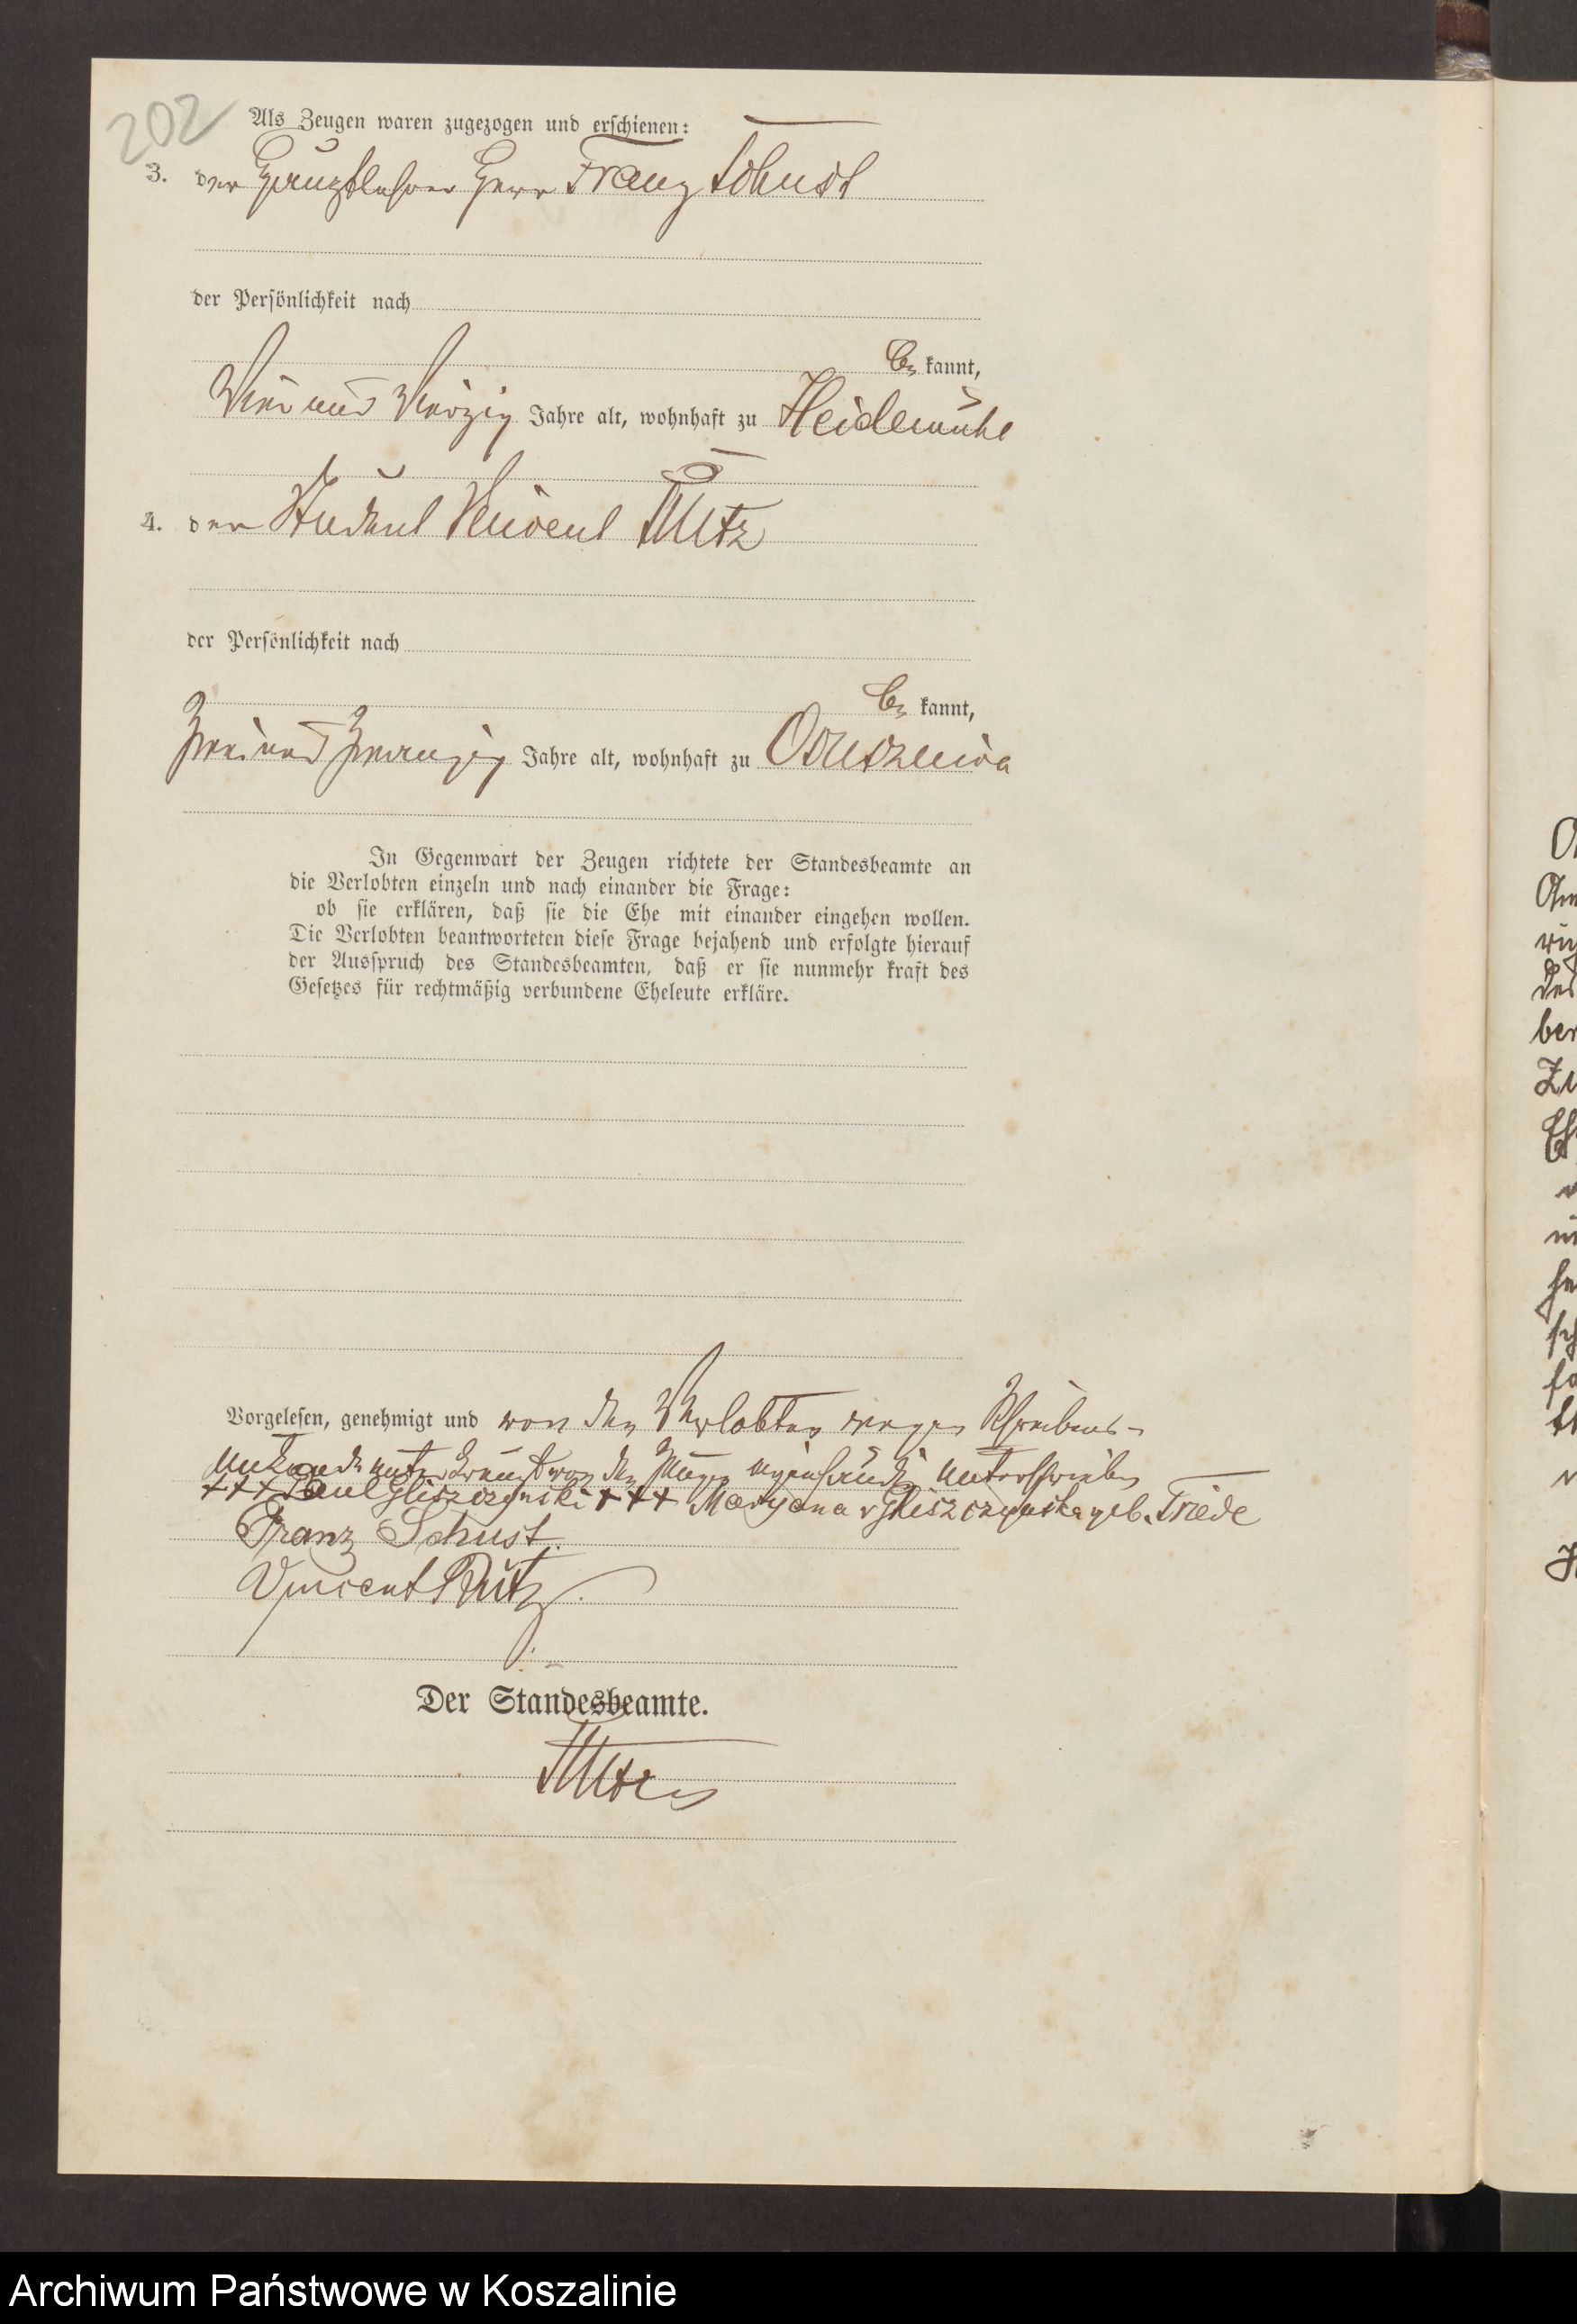 202
Als Zeugen waren zugezogen und erschienen:
3. der Hauptlehrer Herr Franz Schust
der Persönlichkeit nach
be kannt,
Vier und Vierzig Jahre alt, wohnhaft zu Heidemühl
4. der Student Vincent
der Persönlichkeit nach
be kannt,
Zwei und Zwanzig Jahre alt, wohnhaft zu Ossusznica
In Gegenwart der Zeugen richtete der Standesbeamte an
die Verlobten einzeln und nach einander die Frage:
ob sie erklären, daß sie die Ehe mit einander eingehen wollen.
Die Verlobten beantworteten diese Frage bejahend und erfolgte hierauf
der Ausspruch des Standesbeamten, daß er sie nunmehr kraft des
Gesetzes für rechtmäßig verbundene Eheleute erkläre.
Vorgelesen, genehmigt und von den Verlobten wegen Schreibens-
unkunde unterkreuzt von den Zeugen eigenhändig unterschrieben
+++ Paul Gliszczynski +++ Maryana v Gliszczynska geb. Triede
Franz Schust.
Vincent
Der Standesbeamte.
Archiwum Państwowe w Koszalinie